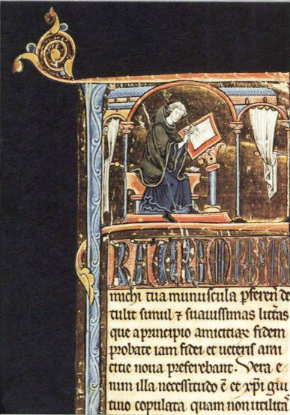 michi tua munuscula pferens de
tulit simul ⁊ suauissimas litt̃as
que a principio amicitiaꝝ fidem
probate iam fidei et ueteris ami
citie noua preferebant. Vera e
num illa necessitudo ē et xp̄i glu
tino copulata quam non utilita